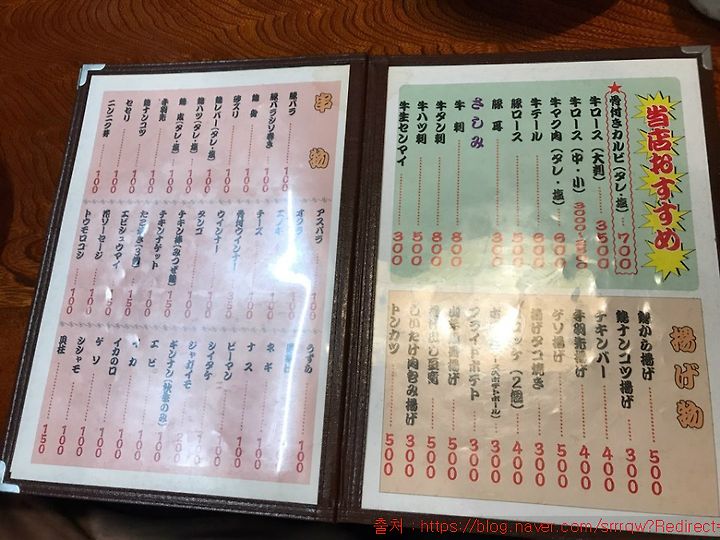 当店おすすめ
骨付きカルビ(タレ・塩) 700
牛ロース(大判) 3500
牛ロース(中・小) 3000
牛マク肉(タレ・塩) 600
牛テール 600
豚ロース 500
豚耳 300
さしみ
牛刺 800
牛タン刺 800
牛ハツ刺 500
牛生センマイ 300
揚げ物
から揚げ 500
鶏ナンコツ揚げ 300
チキンバー 400
手羽先揚げ 400
ゲソ揚げ 500
揚げタコ焼き 300
(2個) 400
ズポテトボール) 300
フライドポテト 400
揚げ 500
揚げ出し豆腐 500
しいたけ肉包み揚げ 300
トンカツ 500
串物
豚バラ 100
豚バラシソ巻き 100
鶏 100
砂ズリ 100
鶏レバー(タレ・塩) 100
鶏ハツ(タレ・塩) 100
鶏皮(タレ・塩) 100
手羽先 100
鶏ナンコツ 100
セセリ 100
ニンニク芽 100
アスパラ 100
オクラ
チーズ
骨付ウインナー
ウインナー 100
タンゴ 100
チキン棒(みつせ鶏) 150
チキンナゲット 100
たこ焼き(3個) 150
エビシュウマイ 100
ソーセージ 100
トウモロコシ 100
うずら 100
ネギ 100
ナス 100
ピーマン 100
シイタケ 100
ジャガイモ 100
ギンナン(秋季のみ) 200
エビ 100
イカ 100
イカのロ 100
ゲソ 100
シシャモ 100
貝柱 150
출처 : https://blog.naver.com/srrrqw?Redirect-